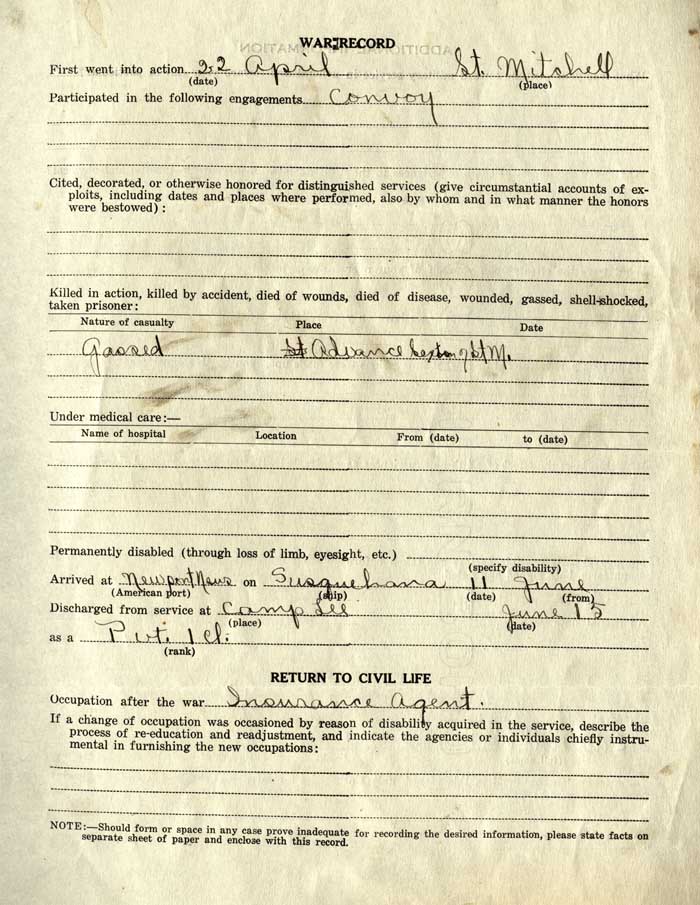 WAR RECORD
First went into action 22 April St. Mitchell
(date) (place)
Participated in the following engagements Convoy
Cited, decorated, or otherwise honored for distinguished services (give circumstantial accounts of ex-
ploits, including dates and places where performed, also by whom and in what manner the honors
were bestowed) :
Killed in action, killed by accident, died of wounds, died of disease, wounded, gassed, shell-shocked,
taken prisoner:
Nature of casualty Place Date
Gassed Advance St M.
Under medical care:—
Name of hospital Location From (date) to (date)
Permanently disabled (through loss of limb, eyesight, etc.)
(specify disability)
Arrived at Newport News on Susquehana 11 June
(American port) (ship) (date) (from)
Discharged from service at Camp Lee June 15
(place) (date)
as a Pvt. 1 Cl.
(rank)
RETURN TO CIVIL LIFE
Occupation after the war Insurance Agent.
If a change of occupation was occasioned by reason of disability acquired in the service, describe the
process of re-education and readjustment, and indicate the agencies or individuals chiefly instru-
mental in furnishing the new occupations:
NOTE:—Should form or space in any case prove inadequate for recording the desired information, please state facts on
separate sheet of paper and enclose with this record.